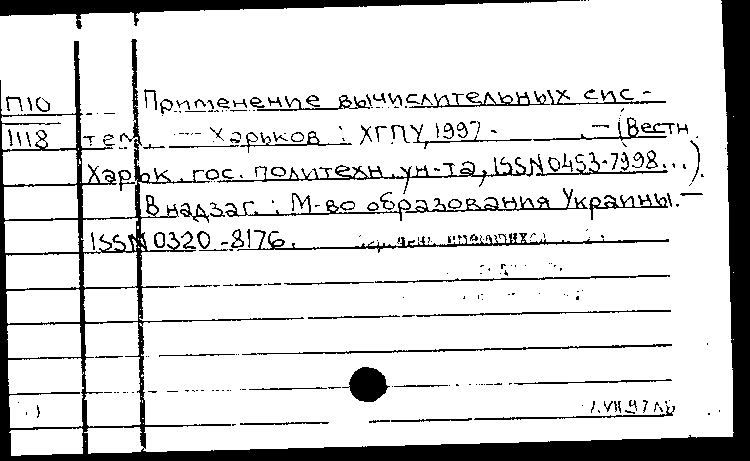 П10 Применение вычислительных сис-
1118 тем. — Харьков : ХГПУ, 1997 - . — (Вестн.
Харьк. гос. политехн. ун-та, ISSN 0453-7998...).
В надзаг. : М-во образования Украины. —
ISSN 0320-8176.